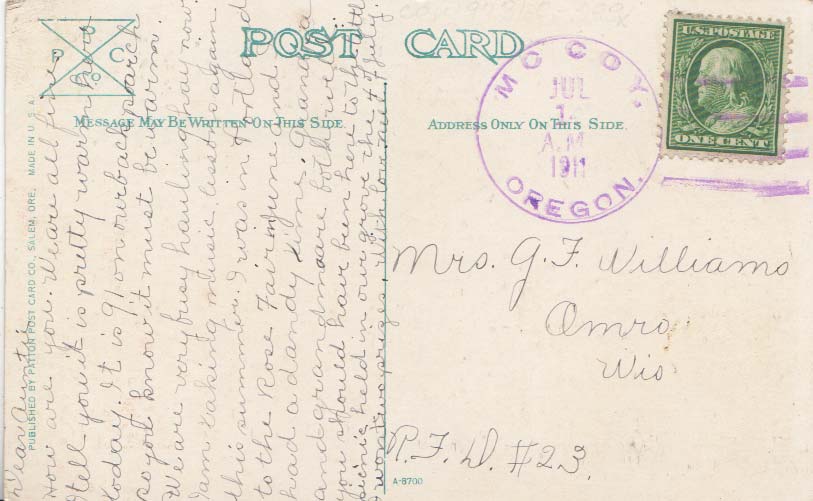 POST CARD
P P C
MESSAGE MAY BE WRITTEN ON THIS SIDE.
ADDRESS ONLY ON THIS SIDE.
MADE IN U.S.A.
PUBLISHED BY PATTON POST CARD CO., SALEM, ORE.
Dear Aunt:
How are you. We are all fine.
I tell you it is pretty warm here
today. It is 91 on our back porch
so you know it must be warm.
We are very busy hauling hay now.
I am taking music lessons again
this summer. I was in Portland
to the Rose Fair in June and
had a dandy time. Grandpa
and grandma are both well
You should have been here to the little
picnic held in our grove the 4 of July.
I won two prizes. With love,
MC COY
JUL
A.M.
1911
OREGON.
U.S. POSTAGE
ONE CENT
Mrs. G. F. Williams
Omro
Wis
R.F.D. #23.
A-8700